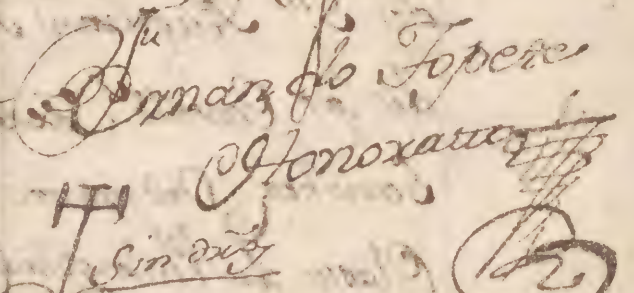 Ju
Ernando Topete
Honoratto
Sin dros